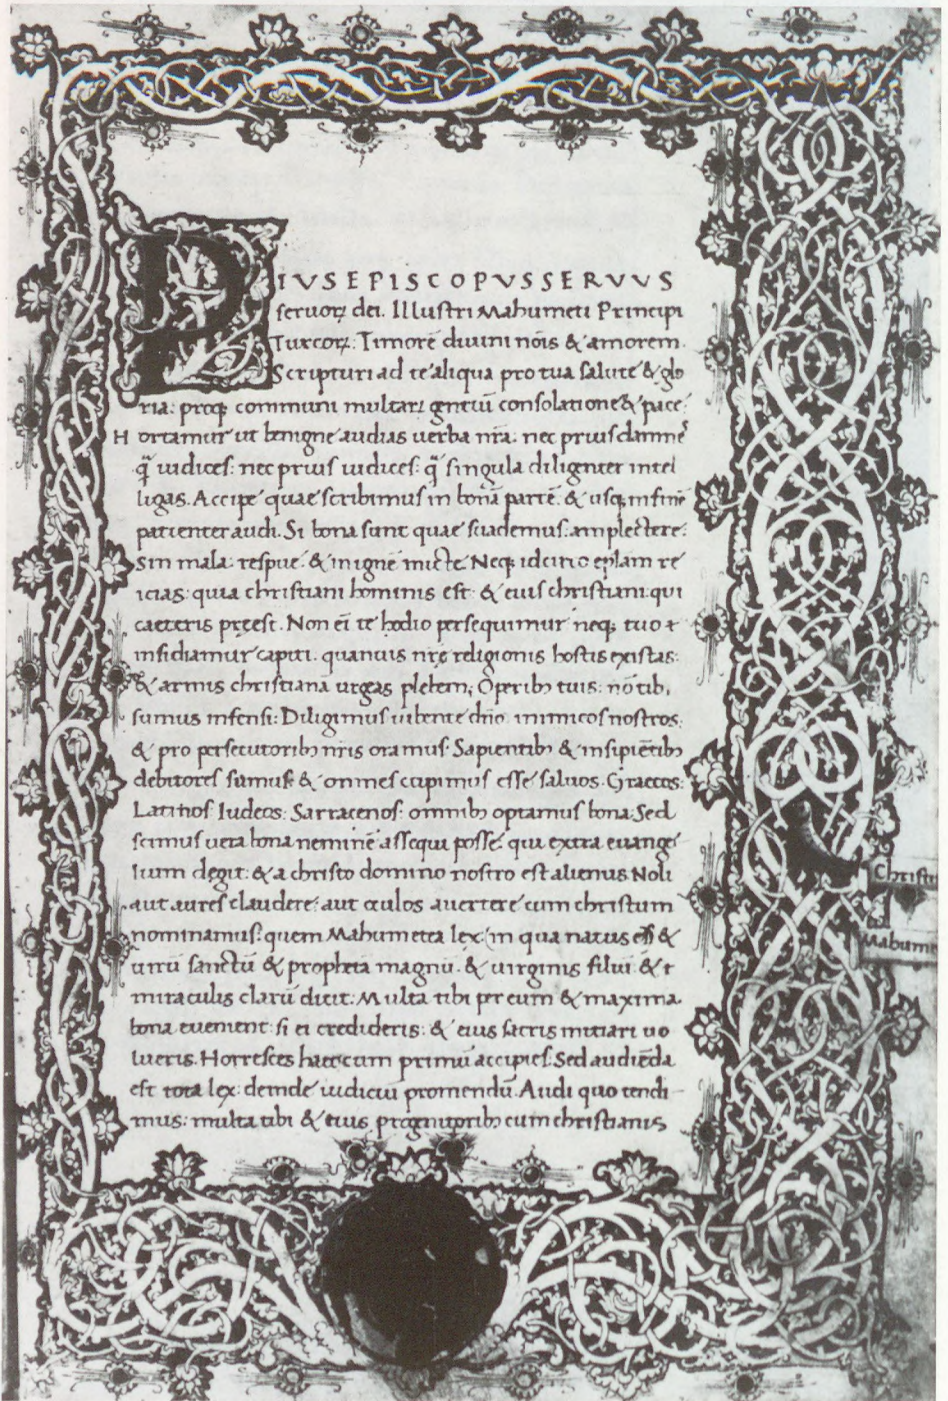 PIUS EPISCOPUS SERVUS
seruoꝝ dei. Illustri Mahumeti Principi
Turcoꝝ: Timorē diuini nōis & amorem.
Scripturi ad te aliqua pro tua salute & glo
ria: proq; communi multaꝝ gentiū consolatione & pace:
Hortamur ut benigne audias uerba nr̄a: nec prius damnes
q̄ iudices: nec prius iudices: q̄ singula diligenter intel
ligas. Accipe quae scribimus in bonā partē. & usq; in finē
patienter audi. Si bona sunt quae suademus: amplectere:
Sin mala: respue. & in ignē micte. Neq; idcirco eplam re
icias: quia christiani hominis est: & eius christiani: qui
caeteris pręest. Non eī te hodio persequimur neq; tuo
insidiamur capiti. quanuis nr̄e religionis hostis existas:
& armis christianā urgeas plebem; Operibȝ tuis: nō tibi,
sumus infensi: Diligimus iubente dn̄o inimicos nostros:
& pro persecutoribȝ nr̄is oramus. Sapientibȝ & insipiētibȝ
debitores sumus: & omnes cupimus esse saluos. Graecos:
Latinos Iudeos: Sarracenos: omnibȝ optamus bona. Sed
scimus uera bona neminē assequi posse: qui extra euange
lium degit: & a christo domino nostro est alienus Noli
aut aures claudere: aut oculos auertere cum christum
nominamus: quem Mahumetea lex: in qua natus es &
uirū sanctū & prophetā magnū. & uirginis filiū. &
miraculis clarū dicit. Multa tibi per eum & maxima
bona euenient: si ei credideris: & eius sacris initiari uo
lueris. Horresces haec cum primū accipies. Sed audiēda
est tota lex: deinde iudiciū promendū. Audi quo tendi
mus: multa tibi & eius progenitoribȝ cum christianis
Christu
Mahume